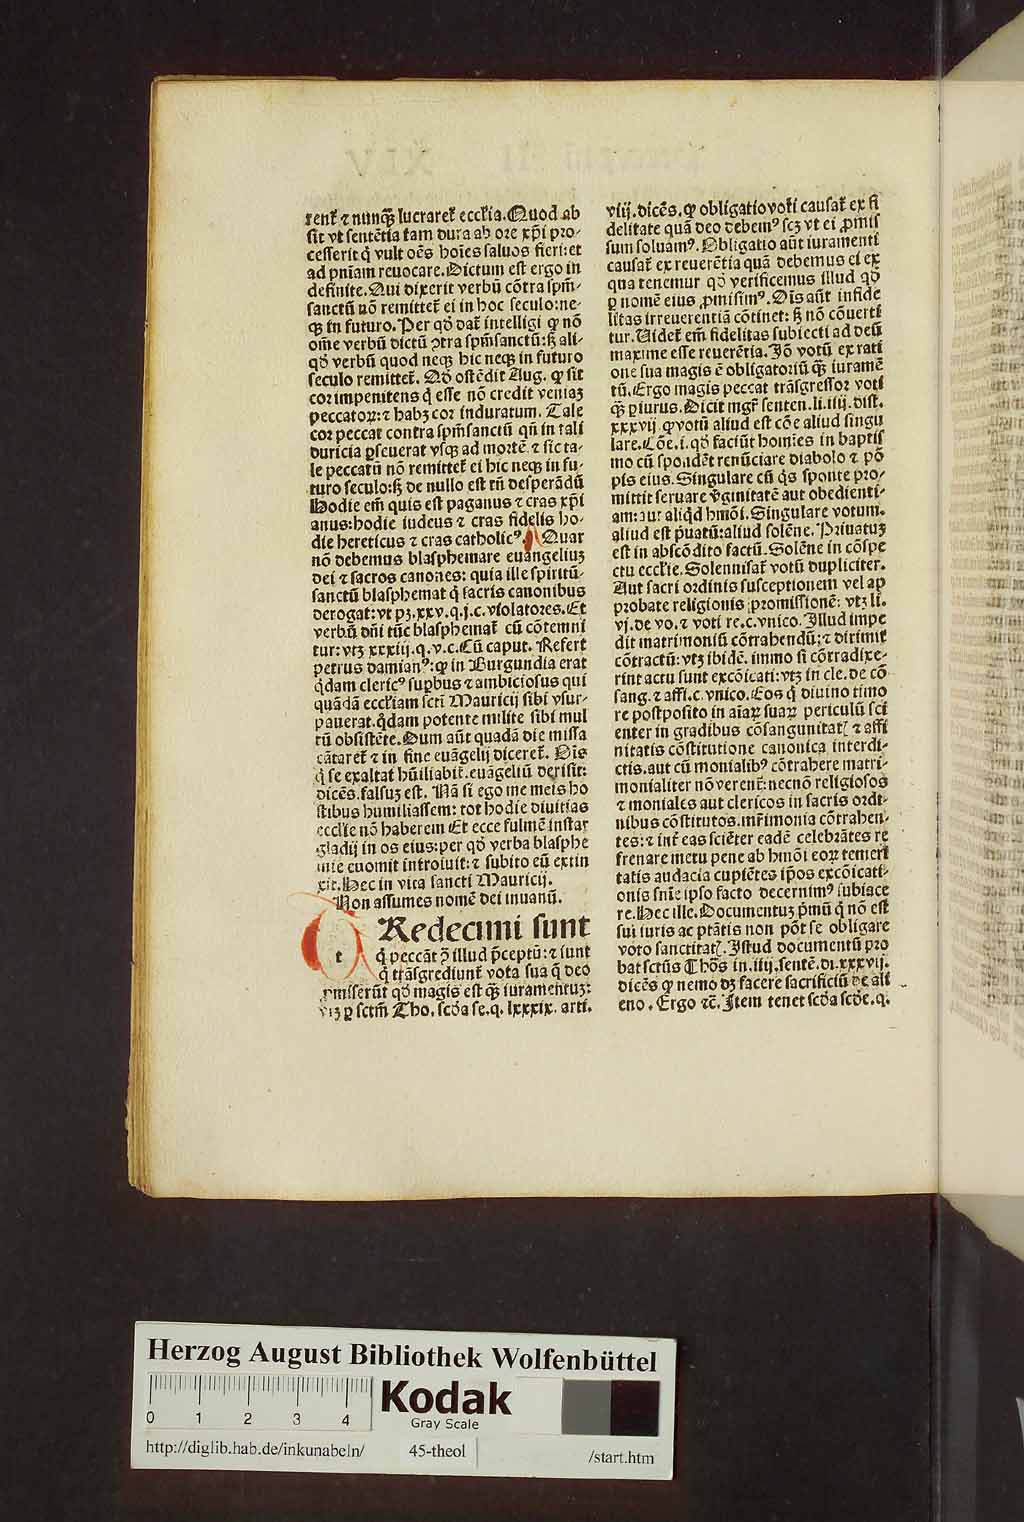 rent᷑ ⁊ nunq̃ʒ lucraret᷑ eccl̃ia. Quod ab
sit vt sentẽtia tam dura ab ore xp̃i pro-
cesserit q̇ vult oẽs hoĩes saluos fieri: et
ad pñiam reuocare. Dictum est ergo in
definite. Qui dixerit verbũ cõtra spm̃-
sanctũ nõ remittet᷑ ei in hoc seculo: ne-
qʒ in futuro. Per qď dat᷑ intelligi ꝙ nõ
om̃e verbũ dictũ ɔtra spm̃sanctũ: sʒ ali-
qď verbũ quod neqʒ hic neqʒ in futuro
seculo remittet᷑. Qď ostẽdit Aug. ꝙ sit
cor impenitens q̇ esse nõ credit veniaʒ
peccatoꝝ: ⁊ habʒ cor induratum. Tale
cor peccat contra spm̃sanctũ qñ in tali
duricia ꝑseuerat vsqʒ ad mortẽ. ⁊ sic ta-
le peccatũ nõ remittet᷑ ei hic neqʒ in fu-
turo seculo: sʒ de nullo est tñ desperãdũ
Hodie em̃ quis est paganus ⁊ cras xp̃i
anus: hodie iudeus ⁊ cras fidelis ho-
die hereticus ⁊ cras catholicꝰ. Quar
nõ debemus blasphemare euangeliuʒ
dei ⁊ sacros canones: quia ille spiritũ-
sanctũ blasphemat q̇ sacris canonibus
derogat: vt pʒ. xxv. q. j. c. violatores. Et
verbũ dñi tũc blasphemat᷑ cũ cõtemni
tur: vtʒ xxxiij. q. v. c. Cũ caput. Refert
petrus damianꝰ: ꝙ in Burgundia erat
q̇dam clericꝰ suꝑbus ⁊ ambiciosus qui
quãdã eccl̃iam scti Mauricij sibi vsur-
pauerat. q̇dam potente milite sibi mul
tũ obsistẽte. Dum aũt quadã die missa
cãtaret᷑ ⁊ in fine euãgelij diceret᷑. Oĩs
q̇ se exaltat hũiliabit᷑. euãgeliũ derisit:
dicẽs. falsuʒ est. Nã si ego me meis ho
stibus humiliassem: tot hodie diuitias
eccl̃ie nõ haberem Et ecce fulmẽ instar
gladij in os eius: per qď verba blasphe
mie euomit introiuit: ⁊ subito eũ extin
xit. Hec in vita sancti Mauricij.
Non assumes nomẽ dei inuanũ.
t Redecimi sunt
q̇ peccãt ɔ̃ illud p̃ceptũ: ⁊ sunt
q̇ trãsgrediunt᷑ vota sua q̇ deo
ꝓmiserũt qď magis est qʒ iuramentuʒ:
vtʒ ꝑ sctm̃ Tho. scďa se. q. lxxxix. arti.
viij. dicẽs. ꝙ obligatio voti causat᷑ ex fi
delitate quã deo debemꝰ scʒ vt ei ꝓmis
sum soluamꝰ. Obligatio aũt iuramenti
causat᷑ ex reuerẽtia quã debemus ei ex
qua tenemur qď verificemus illud qď
ꝑ nomẽ eius ꝓmisimꝰ. Oĩs aũt infide
litas irreuerentiã cõtinet: sʒ nõ cõuerti
tur. Uidet᷑ em̃ fidelitas subiecti ad deũ
maxime esse reuerẽtia. Jõ votũ ex rati
one sua magis ẽ obligatoriũ qʒ iuramẽ
tũ. Ergo magis peccat trãsgressor voti
qʒ ꝑiurus. Dicit mgr̃ senten. li. iiij. dist.
xxxvij ꝙ votũ aliud est cõe aliud singu
lare. Cõe. i. qď faciũt homĩes in baptis
mo cũ spondẽt renũciare diabolo ⁊ põ
pis eius. Singulare cũ q̇s sponte pro-
mittit seruare ṽginitatẽ aut obedienti-
am: aut aliq̇d hmõi. Singulare votum.
aliud est p̃uatũ: aliud solẽne. Priuatuʒ
est in abscõdito factũ. Solẽne in cõspe
ctu eccl̃ie. Solennisat᷑ votũ dupliciter.
Aut sacri ordinis susceptionem vel ap
probate religionis ꝓmissionẽ: vtʒ li.
vj. de vo. ⁊ voti re. c. vnico. Illud impe
dit matrimoniũ cõtrahendũ: ⁊ dirimit
cõtractũ: vtʒ ibidẽ. immo si cõtradixe-
rint actu sunt excõicati: vtʒ in cle. de cõ
sang. ⁊ affi. c. vnico. Eos q̇ diuino timo
re postposito in aĩaꝝ suaꝝ periculũ sci
enter in gradibus cõsanguinitatꝭ ⁊ affi
nitatis cõstitutione canonica interdi-
ctis. aut cũ monialibꝰ cõtrahere matri-
monialiter nõ verent᷑: necnõ religiosos
⁊ moniales aut clericos in sacris ordi-
nibus cõstitutos. mr̃imonia cõtrahen-
tes: ⁊ int᷑ eas sciẽter eadẽ celebrãtes re
frenare metu pene ab hmõi eoꝝ temeri
tatis audacia cupiẽtes ip̃os excõicati-
onis snĩe ipso facto decernimꝰ subiace
re. Hec ille. Documentuʒ p̃mũ q̇ nõ est
sui iuris ac ptãtis non põt se obligare
voto sanctitatꝭ. Istud documentũ pro
bat sctũs Thõs in. iiij. sentẽ. di. xxxvij.
dicẽs ꝙ nemo dʒ facere sacrificiũ de ali
eno. Ergo ⁊c̃. Item tenet scďa scďe. q.
Herzog August Bibliothek Wolfenbüttel
0 1 2 3 4
Kodak
Gray Scale
http://diglib.hab.de/inkunabeln/ 45-theol /start.htm